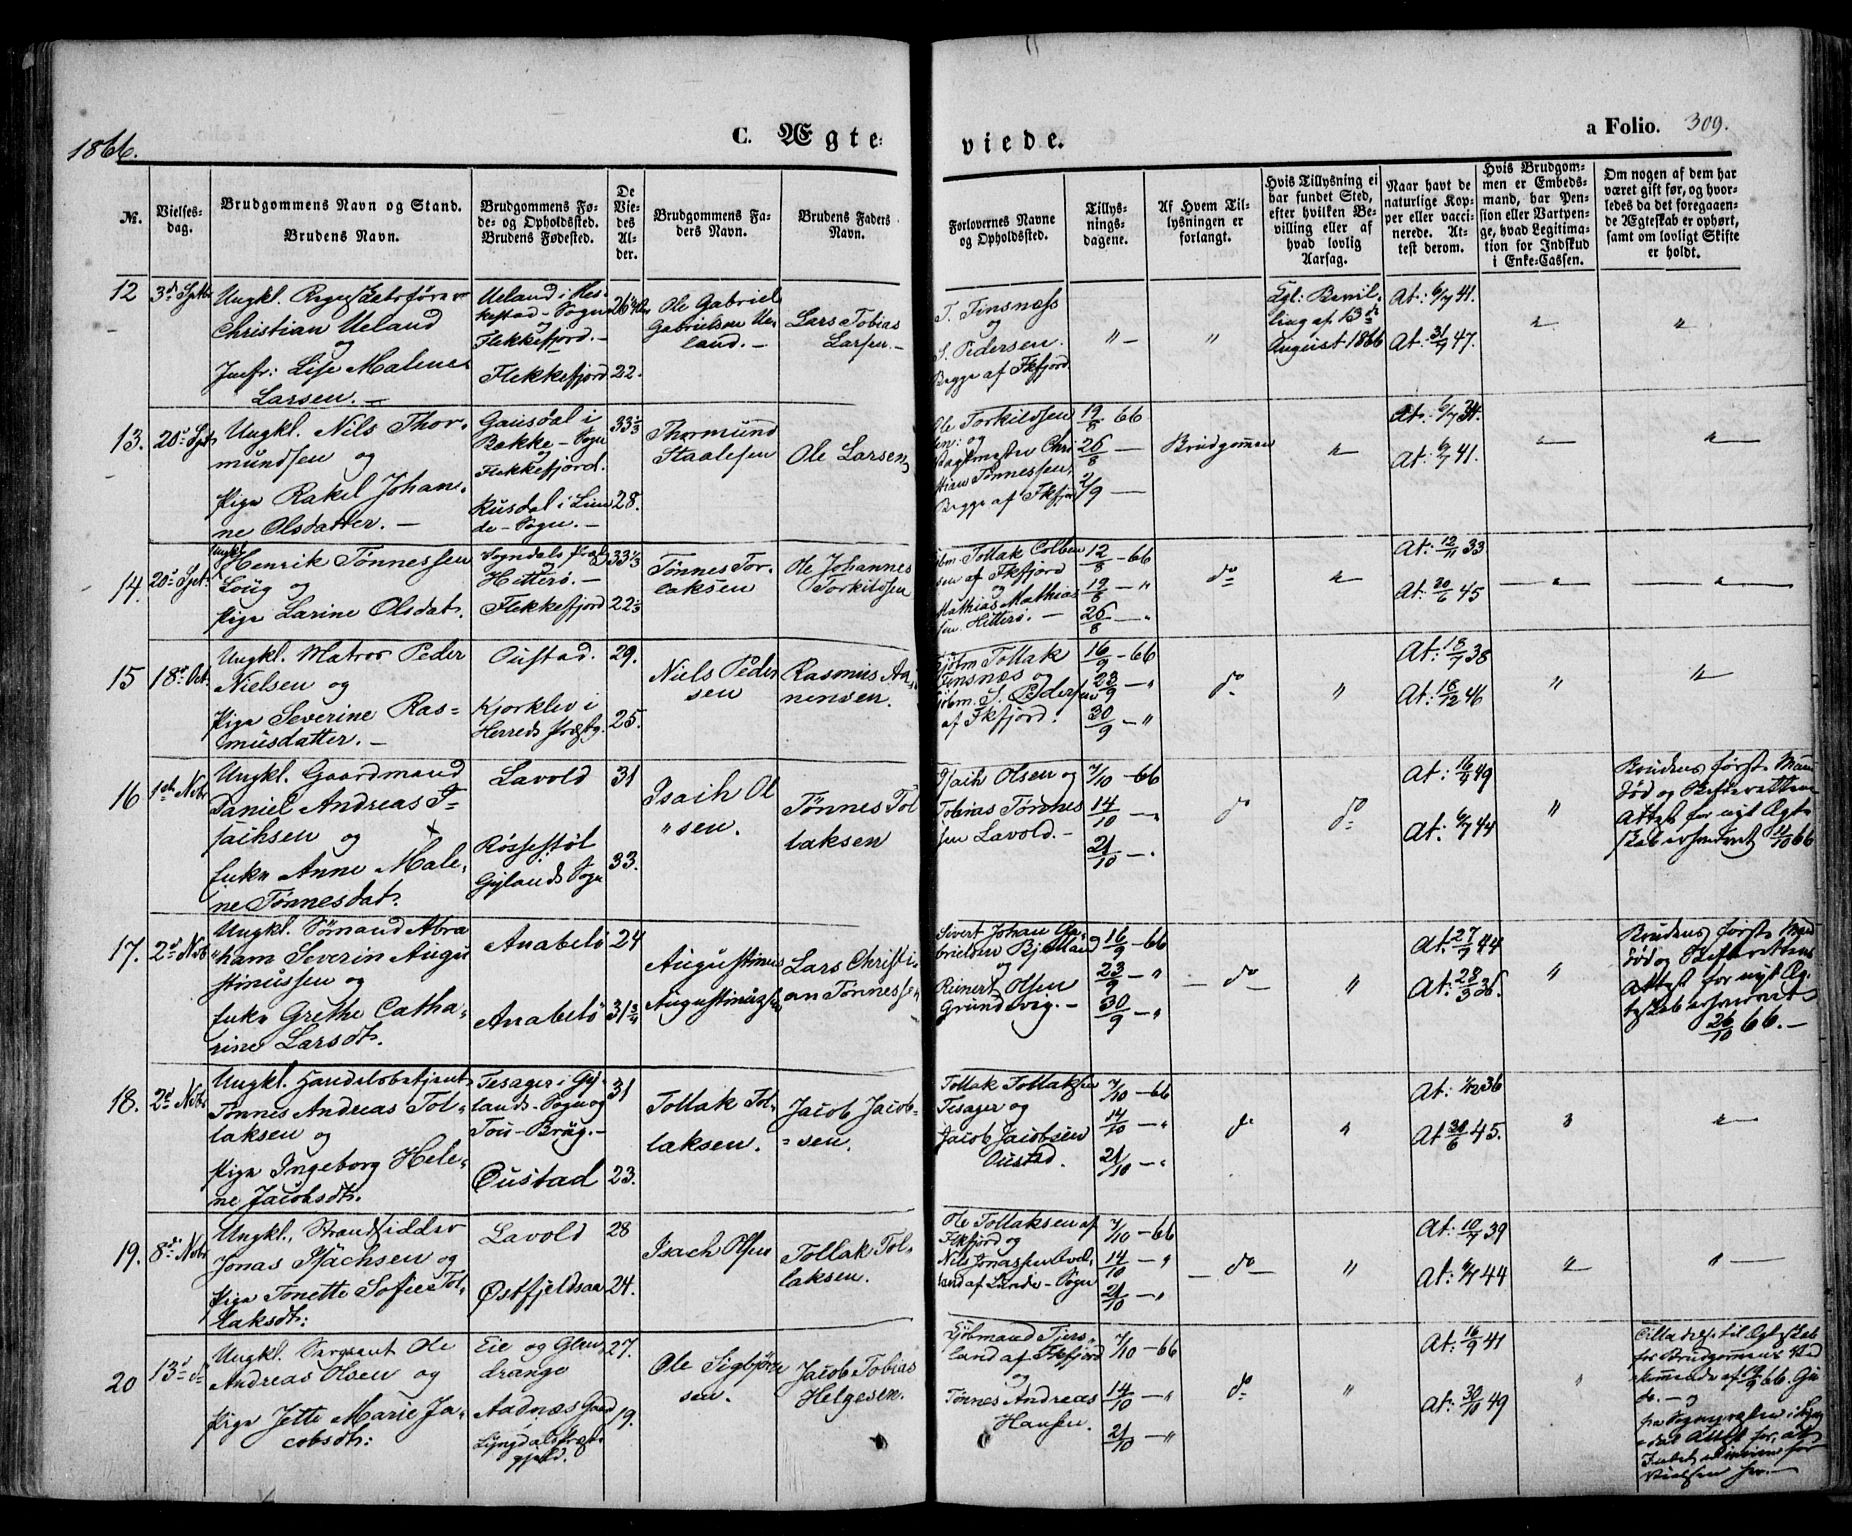 1866.
C. Ægte-
viede.
a Folio. 309.
Nr.
Vielses-
dag.
Brudgommens Navn og Stand.
Brudens Navn.
Brudgommens Fø-
de- og Opholdssted.
Brudens Fødested.
De
Vie-
des
Al-
der.
Brudgommens Fa-
ders Navn.
Brudens Faders
Navn.
Forlovernes Navne
og Opholdssted.
Tillys-
nings-
dagene.
Af Hvem Til-
lysningen er
forlangt.
Hvis Tillysning ei
har fundet Sted,
efter hvilken Be-
villing eller af
hvad lovlig
Aarsag.
Naar havt de
naturlige Kop-
per eller vacci-
nerede. At-
test derom.
Hvis Brudgom-
men er Embeds-
mand, har Pen-
sion eller Vartpen-
ge, hvad Legitima-
tion for Indskud
i Enke-Cassen.
Om nogen af dem har
været gift før, og hvor-
ledes da det foregaaen-
de Ægteskab er ophørt,
samt om lovligt Skifte
er holdt.
12
3d Sptbr
Ungkl.
Christian Ueland
og
Jmfr: Lise Malene
Larsen. —
Ueland i Hes-
kestad - Sogn
og
Flekkefjord. —
Flekkefjord
22.
Ole Gabriel
Gabrielsen Ue-
land. —
Lars Tobias
Larsen. —
T. Tinsnæss
og
S. Pedersen.
Begge af Fkfjord
" —
"
Kgl: Bevil-
ling af 13d
August 1866
At: 6/7 41.
At: 31/7 47.
"
"
13.
20d Spt
Ungkl. Nils Thor-
mundsen og
Pige Rakel Johan-
ne Olsdatter. —
Gausdal i
Bakke - Sogn
og
Flekkefjord.
Rusdal i Lun-
de - Sogn. —
33 1/3
28.
Thormund
Staalesen
Ole Larsen
Ole Torkildsen
og
Chri-
stian Tønnessen,
Begge af Fkfjord
19/8 66
26/8 —
2/9 —
Brudgommen
"
At. 6/7 34.
At: 6/7 41.
"
"
14.
20d Spt.
Ungkl.
Henrik Tønnessen
Loug og
Pige Larine Olsdat.
Sogndals
og
Hitterø. —
Flekkefjord
33 1/3
22 1/3
Tønnes Tor-
laksen
Ole Johannes
Torkildsen
Tollak Colben-
sen af Fkfjord
og
Mathias Mathias-
sen. Hitterø. —
12/8 - 66
19/8 — "
26/8 — "
do
"
At: 12/11 33
At: 20/6 45
"
"
15
18d Oct.
Ungkl. Matros Peder
Nielsen og
Pige Severine Ras-
musdatter. —
Oustad.
Kjorklev i
Herreds Præstg.
29.
25.
Niels Peder-
sen
Rasmus Aa-
nensen.
Kjøbm Tollak
Tinsnæs og
Kjøbm. S. Pedersen
af Fkfjord.
16/9 - 66
23/9 — "
30/9 — "
do
"
At: 18/7 38
At: 18/12 46
"
"
16
1ste Nobr
Ungkl. Gaardmand
Daniel Andreas I-
sachsen og
Enke Anne Male-
ne Tønnesdat.
Lavold
Røssestøl
i
Gylands Sogn
31
33.
Isaih Ol-
sen.
Tønnes Tol-
laksen
Isaih Olsen og
Tobias Tønnes-
sen Lavold. —
7/10 - 66
14/10 — "
21/10 — "
do
do
At: 16/9 49
At: 6/7 44
"
Brudens første Man
død og Skifterettens
Attest for nyt Ægte-
skab 11/10 66
17.
2d Nobr
Ungkl. Sømand Abra-
ham Severin Augu-
stinussen og
Enke Grethe Catha-
rine Larsdt.
Anabelø
Anabelø
24
31 3/4
Augustinus
Augustinussen
Lars Christi-
an Tønnessen
Sivert Johan Ga-
brielsen Kjelland
og
Reinert Olsen
Grundsvig. —
16/9 - 66
23/9 — "
30/9 — "
— do —
"
At: 27/7 44
At: 28/3 36.
"
Brudens første Man
død og Skifterettens
Attest for nyt Æg-
teskab
26/10 66. —
18.
2d Nobr
Ungkl. Handelsbetjent
Tønnes Andreas Tol-
laksen og
Pige Ingeborg Hele-
ne Jacobsdt.
Tesager i Gy-
lands - Sogn og
Tou - Brug. —
Oustad
31
23.
Tollak Tol-
laksen.
Jacob Jacob-
sen.
Tollak Tollaksen
Tesager og
Jacob Jacobsen
Oustad.
7/10 - 66
14/10 — "
21/10 — "
do
"
At: 1/12 36
At 30/6 45.
"
"
19.
8d Nobr
Ungkl. Strandsidder
Jonas Isachsen og
Pige Tonette Sofie Tol-
laksdt:
Lavold
Østfjeldsaa
28
24.
Isach Olsen
Tollak Tol-
laksen.
Ole Tollaksen af
Fkfjord og
Nils Jonassen
land af Lunde - Sogn
7/10 - 66
14/10 — "
21/10 — "
— do —
"
At: 10/7 39
At: 6/7 44
"
" —
20
13d do
Ungkl. Sergeant Ole
Andreas Olsen og
Pige Jette Marie Ja-
cobsdt:
Eie og Glen-
drange
Aadnæs Gaard
Lyngdals Præste-
gjeld.
27.
19.
Ole Sigbjørn-
sen.
Jacob Tobias
Helgesen.
Kjøbmand Tjers-
land af Fkfjord
og
Tønnes Andreas
Hansen.
7/10 - 66
14/10 — "
21/10 — "
do
"
At: 16/9 41
At: 30/10 49
"
Tilladelse til Ægteskab
for Brudgommens Ved-
kommende af 66.
og
fra Sognepræsten i Lyng-
dal Attest for, at
Intet er i Veien for
Vielsen